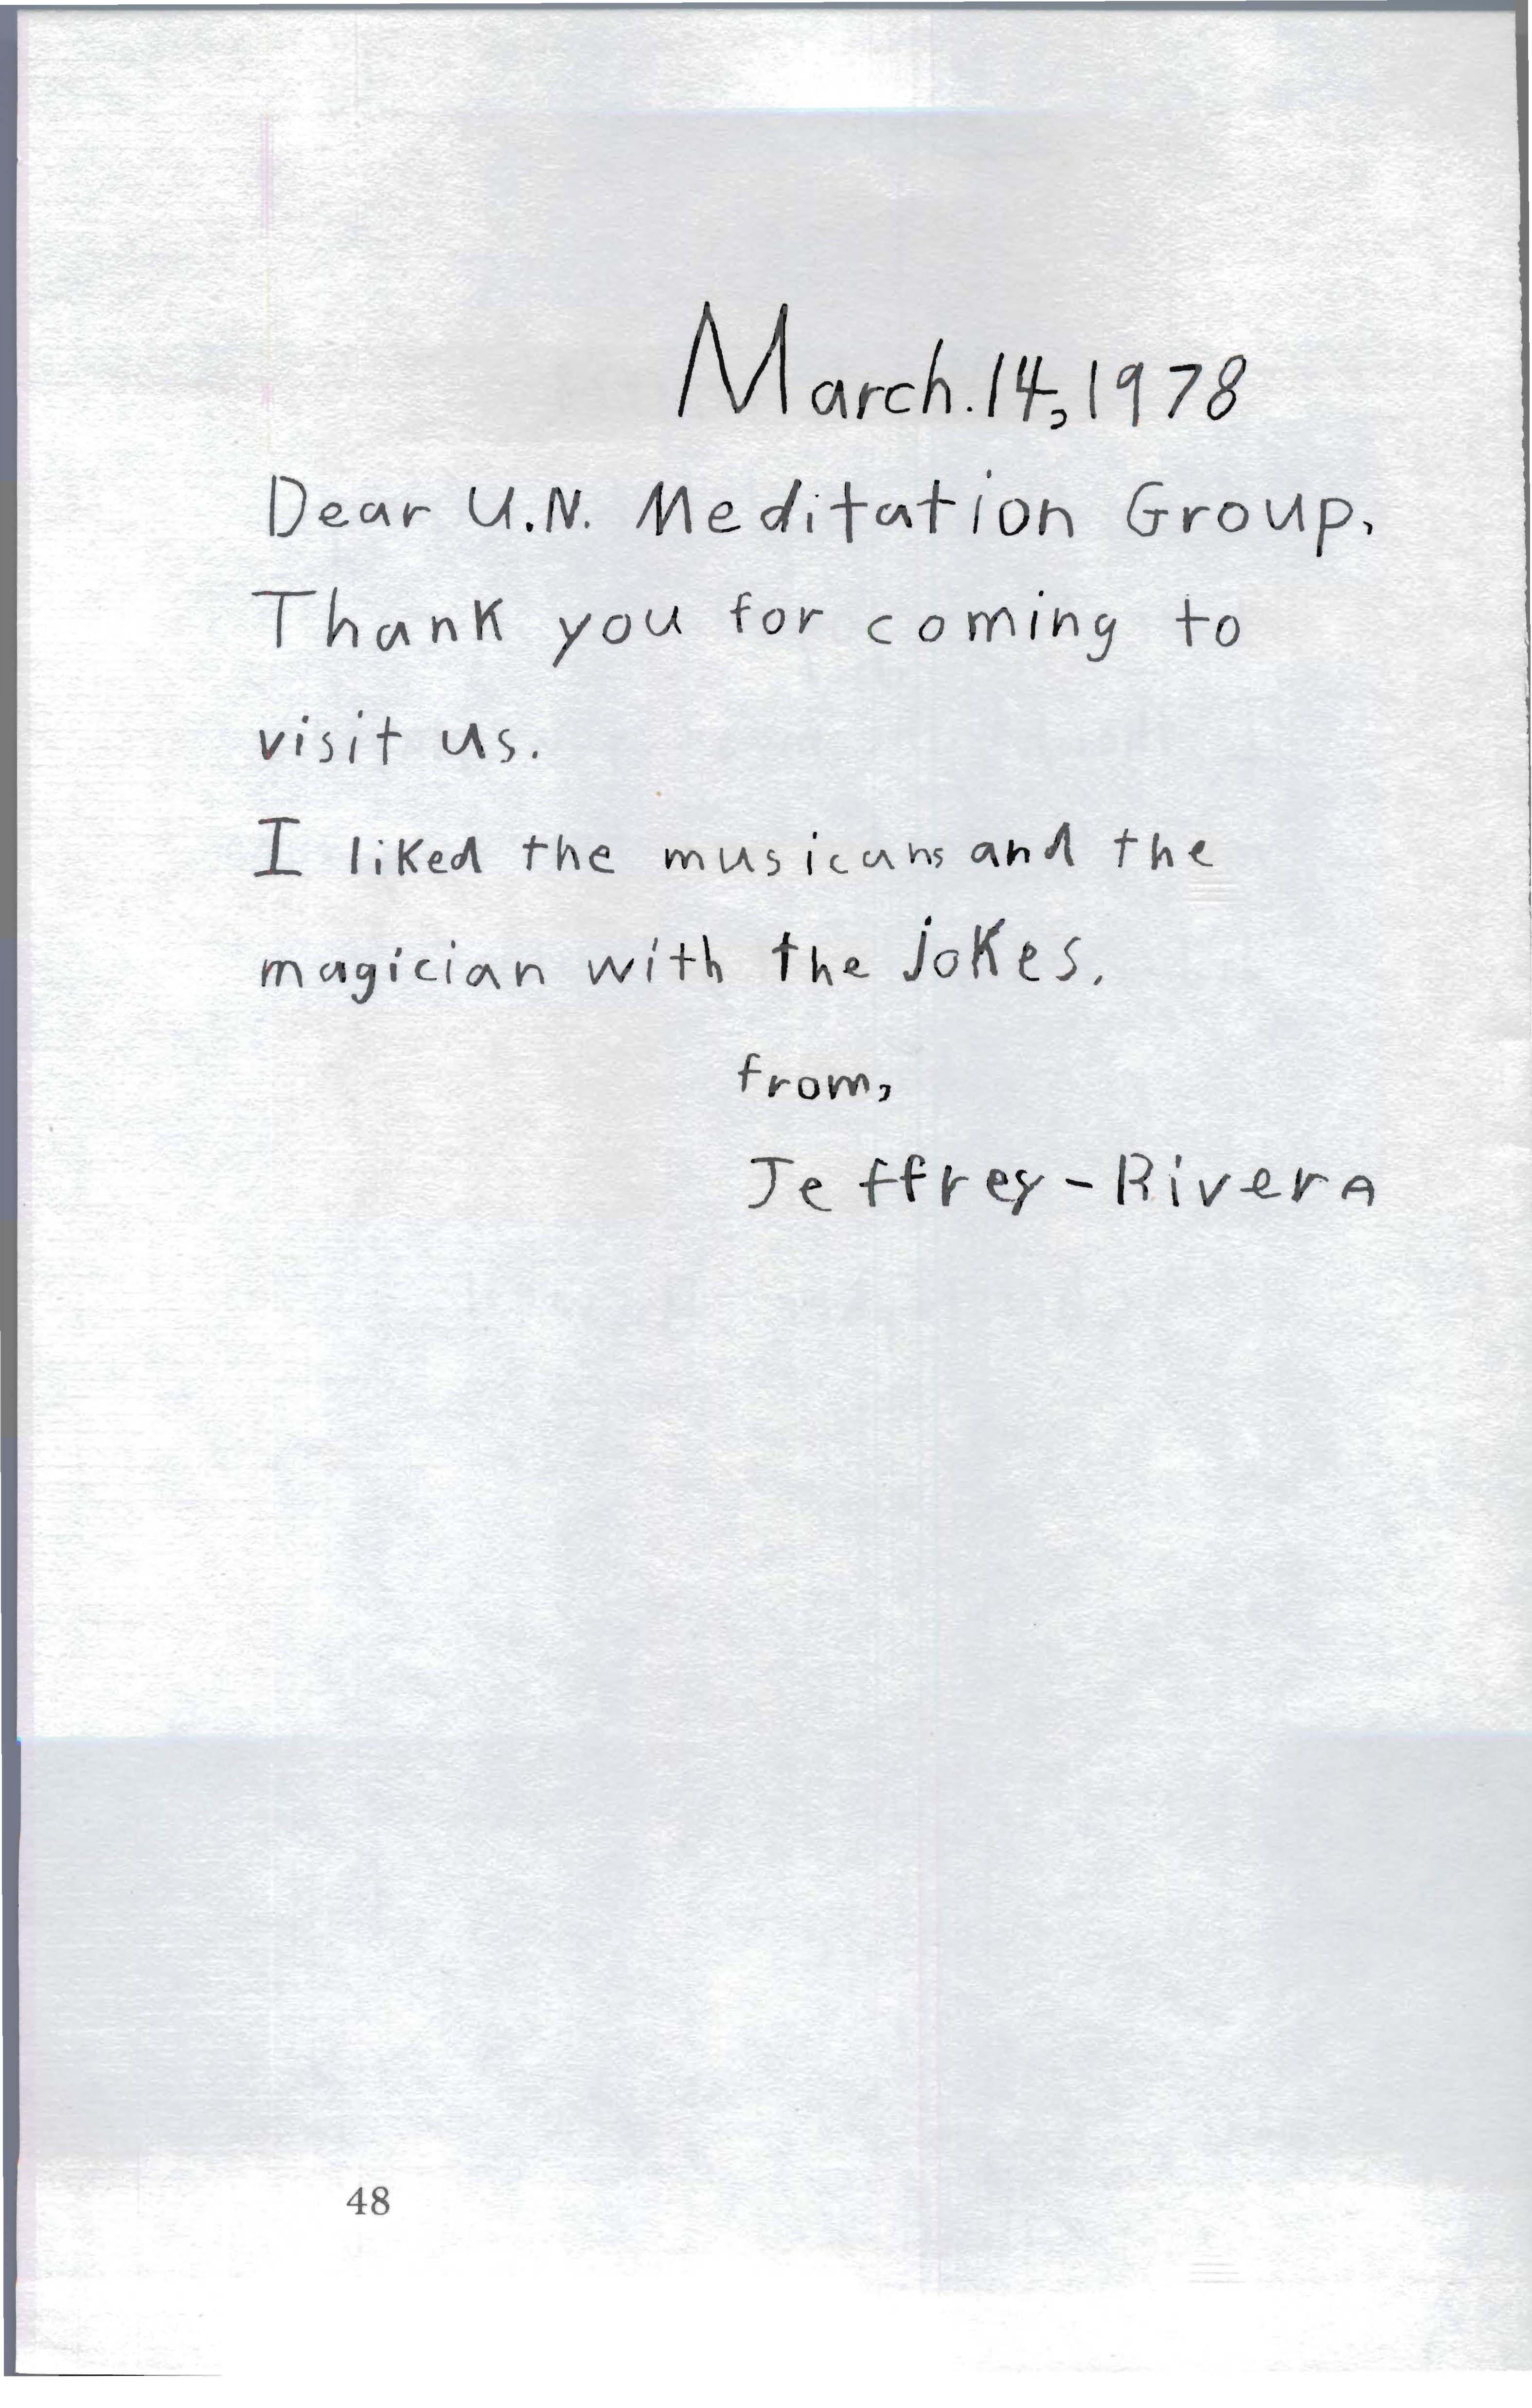 March. 14, 1978
Dear U.N. Meditation Group,
Thank you for coming to
visit us.
I liked the musicans and the
magician with the jokes.
from,
Jeffrey - Rivera
48